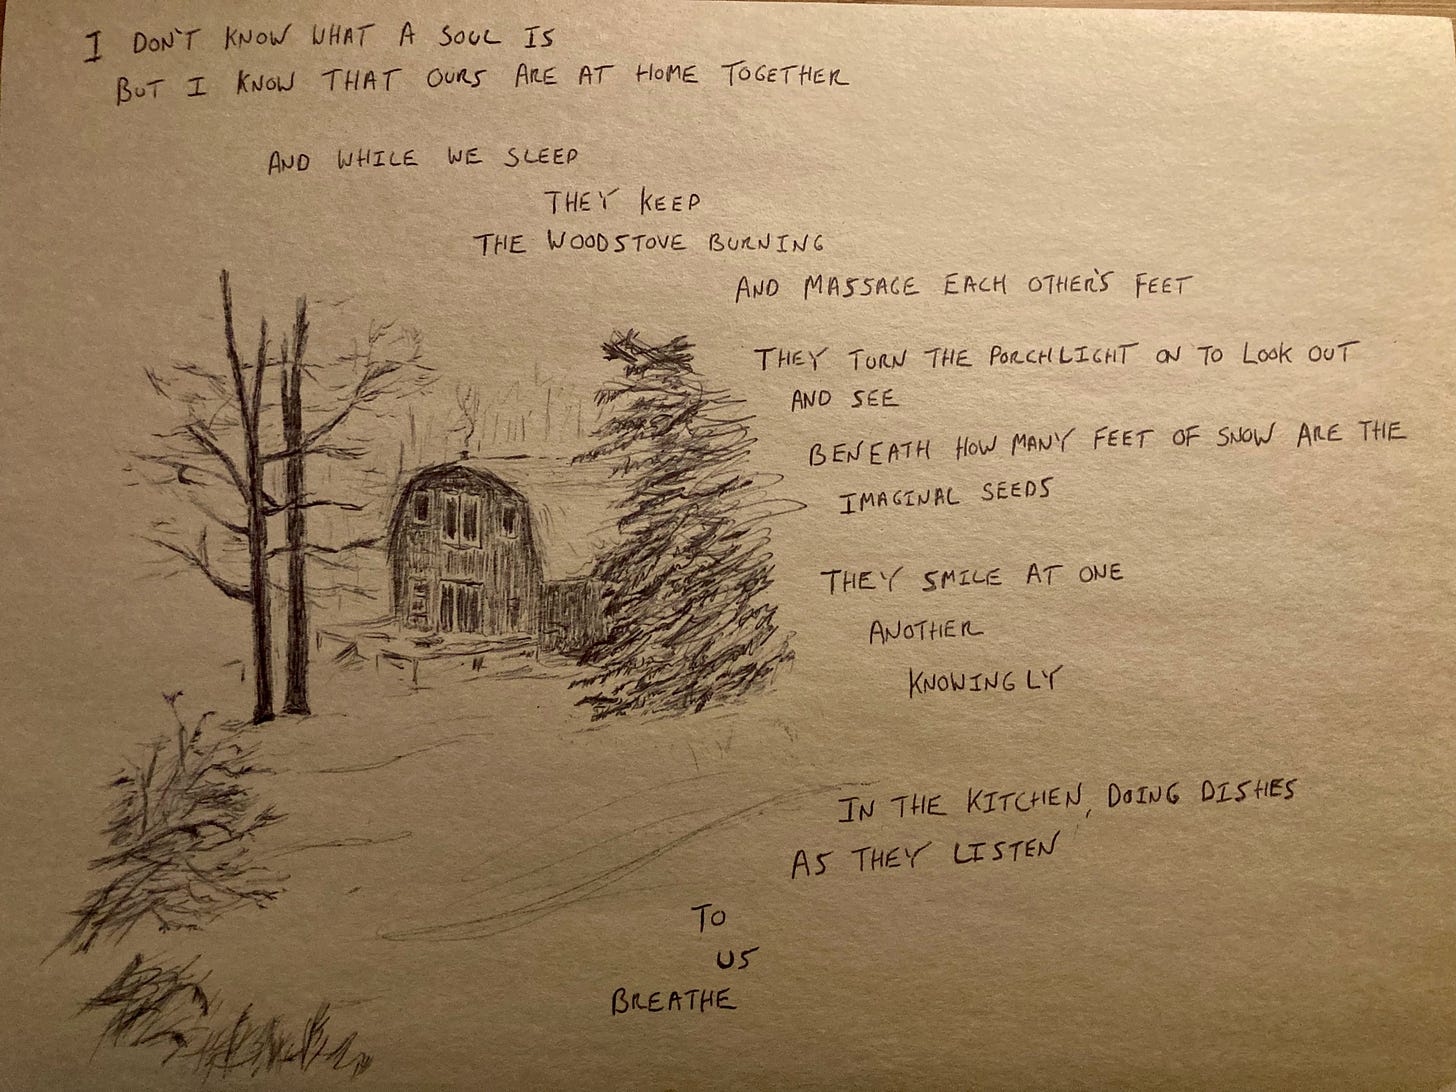 I DON'T KNOW WHAT A SOUL IS
BUT I KNOW THAT OURS ARE AT HOME TOGETHER
AND WHILE WE SLEEP
THEY KEEP
THE WOODSTOVE BURNING
AND MASSAGE EACH OTHER'S FEET
THEY TURN THE PORCHLIGHT ON TO LOOK OUT
AND SEE
BENEATH HOW MANY FEET OF SNOW ARE THE
IMAGINAL SEEDS
THEY SMILE AT ONE
ANOTHER
KNOWINGLY
IN THE KITCHEN, DOING DISHES
AS THEY LISTEN
TO
US
BREATHE